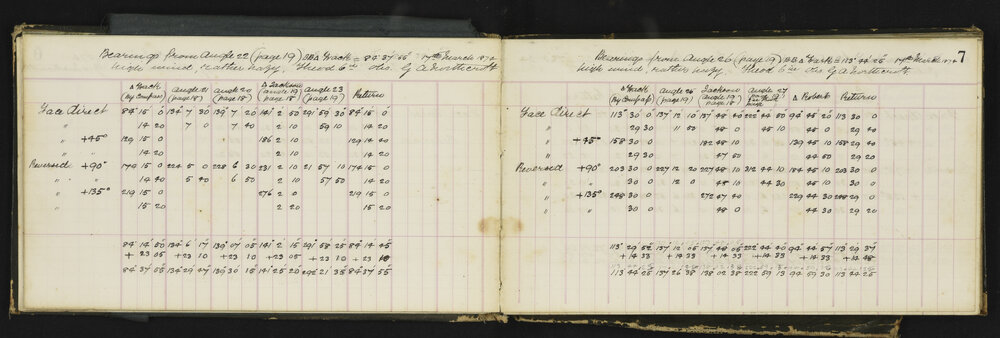 Bearings from Angle 22 (page 19) 17th March
high wind, rather hazy. Theod 6in Obs. G A Northcroft
Δ Jack Angle 21 Angle 20 Δ Jackson Angle 23 Return
(By Compass) (page 18) (page 18) (angle 19) (page 19)
page 18
Face Direct 84° 15 0 134° 7 30 139° 7 20 141° 2 50 291° 59 30 84° 15 0
" 14 20 7 0 7 40 2 10 59 10 14 20
" +45° 129 15 0 186 2 10 129 14 40
" 14 20 2 10 14 20
Reversed +90° 174 15 0 224 5 0 228 6 30 231 2 10 21 57 10 174 15 0
" " 14 40 5 40 6 50 2 10 57 50 14 20
" +135° 219 15 0 276 2 0 219 15 0
15 20 2 20 15 20
84° 14 50 134° 6 17 139° 07 05 141° 2 15 291° 58 25 84° 14 45
+ 23 05 + 23 10 + 23 10 + 23 05 + 23 10 + 23
84 37 55 134 29 47 139 30 15 141 25 20 292 21 35 84 37 55
7
Bearings from Angle 26 (page 19) 17th March
high wind, rather hazy. Theod 6in Obs G A Northcroft
Δ Jack Angle 25 Jackson Angle 27 Δ Robert Return
(By Compass) (page 19) (angle 19) page 19
page 18
Face Direct 113° 30 0 137° 12 10 137° 48 40 222° 44 50 94° 45 20 113 30 0
" 29 30 11 50 48 0 45 10 45 0 29 40
" +45° 158 30 0 182 48 10 139 45 10 158 29 40
" 29 30 47 50 44 50 29 20
Reversed +90° 203 30 0 227 12 20 227 48 10 312 44 10 184 45 10 203 30 0
" 30 0 12 0 48 10 44 30 45 10 30 0
" +135 248 30 0 272 47 40 229 44 30 248 29 0
" " 30 0 48 0 44 30 29 20
113° 29 52 137° 12 05 137° 48 05 222° 44 40 94° 44 57 113 29 37
+ 14 33 + 14 33 + 14 33 + 14 33 + 14 33 + 14 48
113 44 25 137 26 38 138 02 38 222 59 13 94 59 30 113 44 25